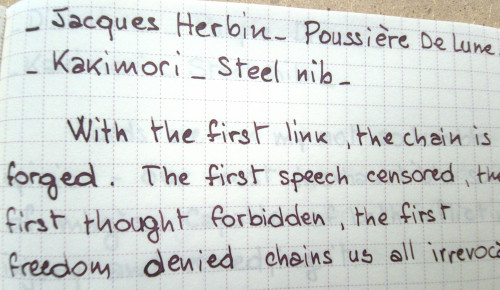 - Jacques Herbin - Poussière De Lune
- Kakimori - Steel nib -
With the first link, the chain is
forged. The first speech censored, the
first thought forbidden, the first
freedom denied chains us all